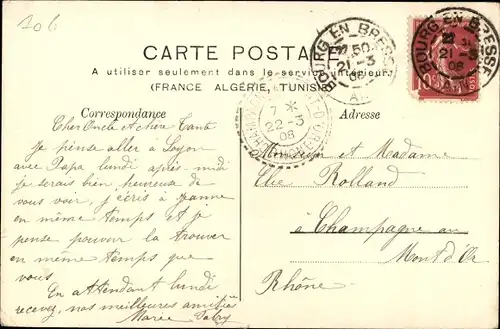 206
CARTE POSTALE
A utiliser seulement dans le service intérieur.
(FRANCE ALGÉRIE, TUNISIE)
Correspondance
Adresse
BOURG-EN-BRESSE
21-3
08
AIN
BOURG-EN-BRESSE
21-3
08
AIN
7 *
22-3
08
Cher Oncle et chère Tante
Je pense aller à Lyon
avec Papa lundi après-midi
je serais bien heureuse de
vous voir, j'écris à Jeanne
en même temps et je
pense pouvoir la trouver
en même temps que
vous
En attendant lundi
recevez, nos meilleures amitiés
Marie
Monsieur et Madame
Elie Rolland
à Champagne au
Mont d'Or
Rhône